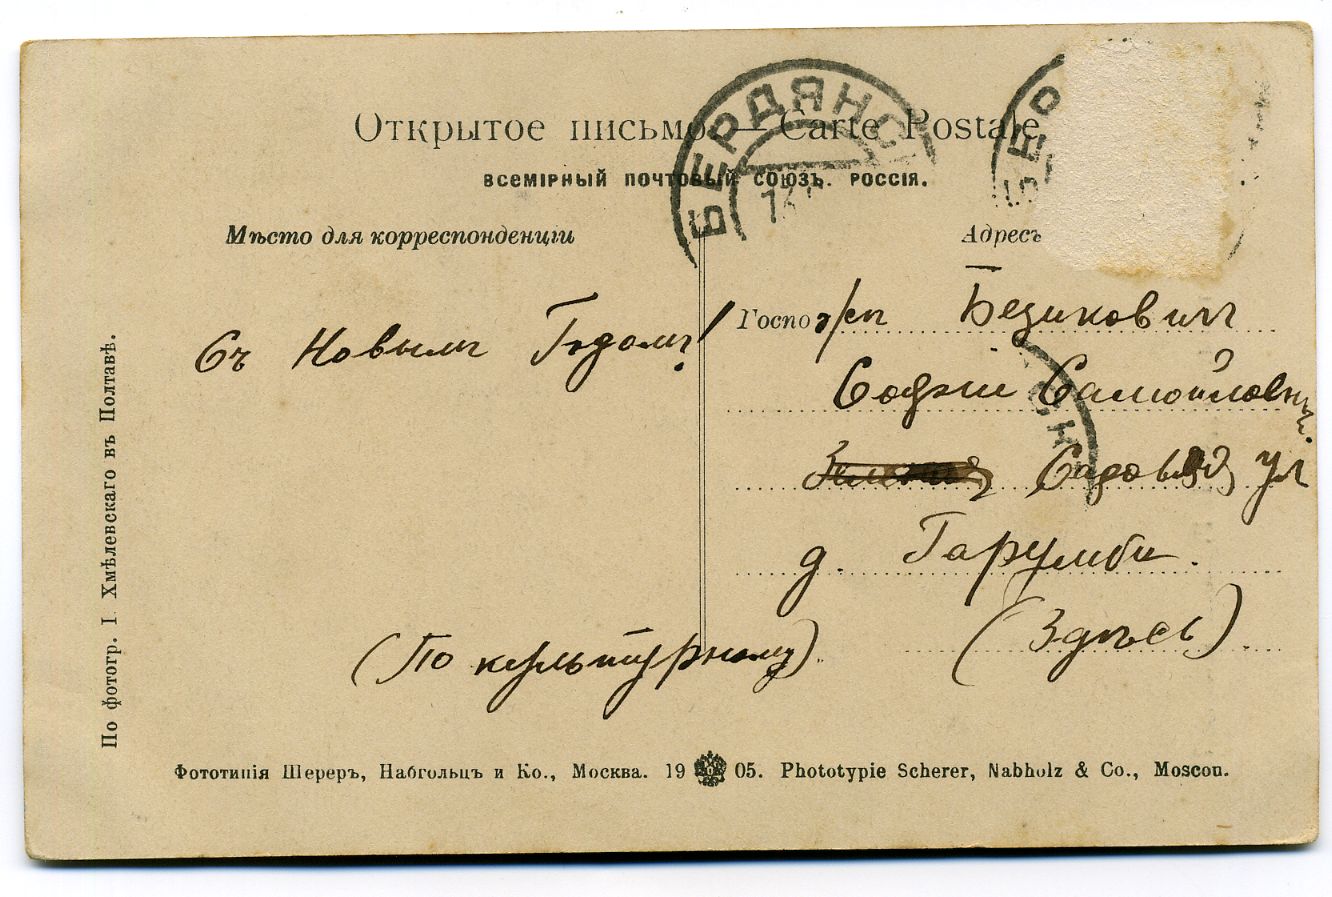 Открытое письмо — Carte Postale
ВСЕМІРНЫЙ ПОЧТОВЫЙ СОЮЗЪ. РОССІЯ.
БЕРДЯНС
БЕР
СК
Мѣсто для корреспонденціи
Съ Новымъ Годомъ!
(По культурному).
Адресъ
Госпо
Безиковичъ
Софіи Самойловнѣ.
Садовая ул
д. Гарумби.
(Здѣсь).
По фотогр. І. Хмѣлевскаго въ Полтавѣ.
Фототипія Шереръ, Набгольцъ и Ко., Москва. 19 05. Phototypie Scherer, Nabholz & Co., Moscou.